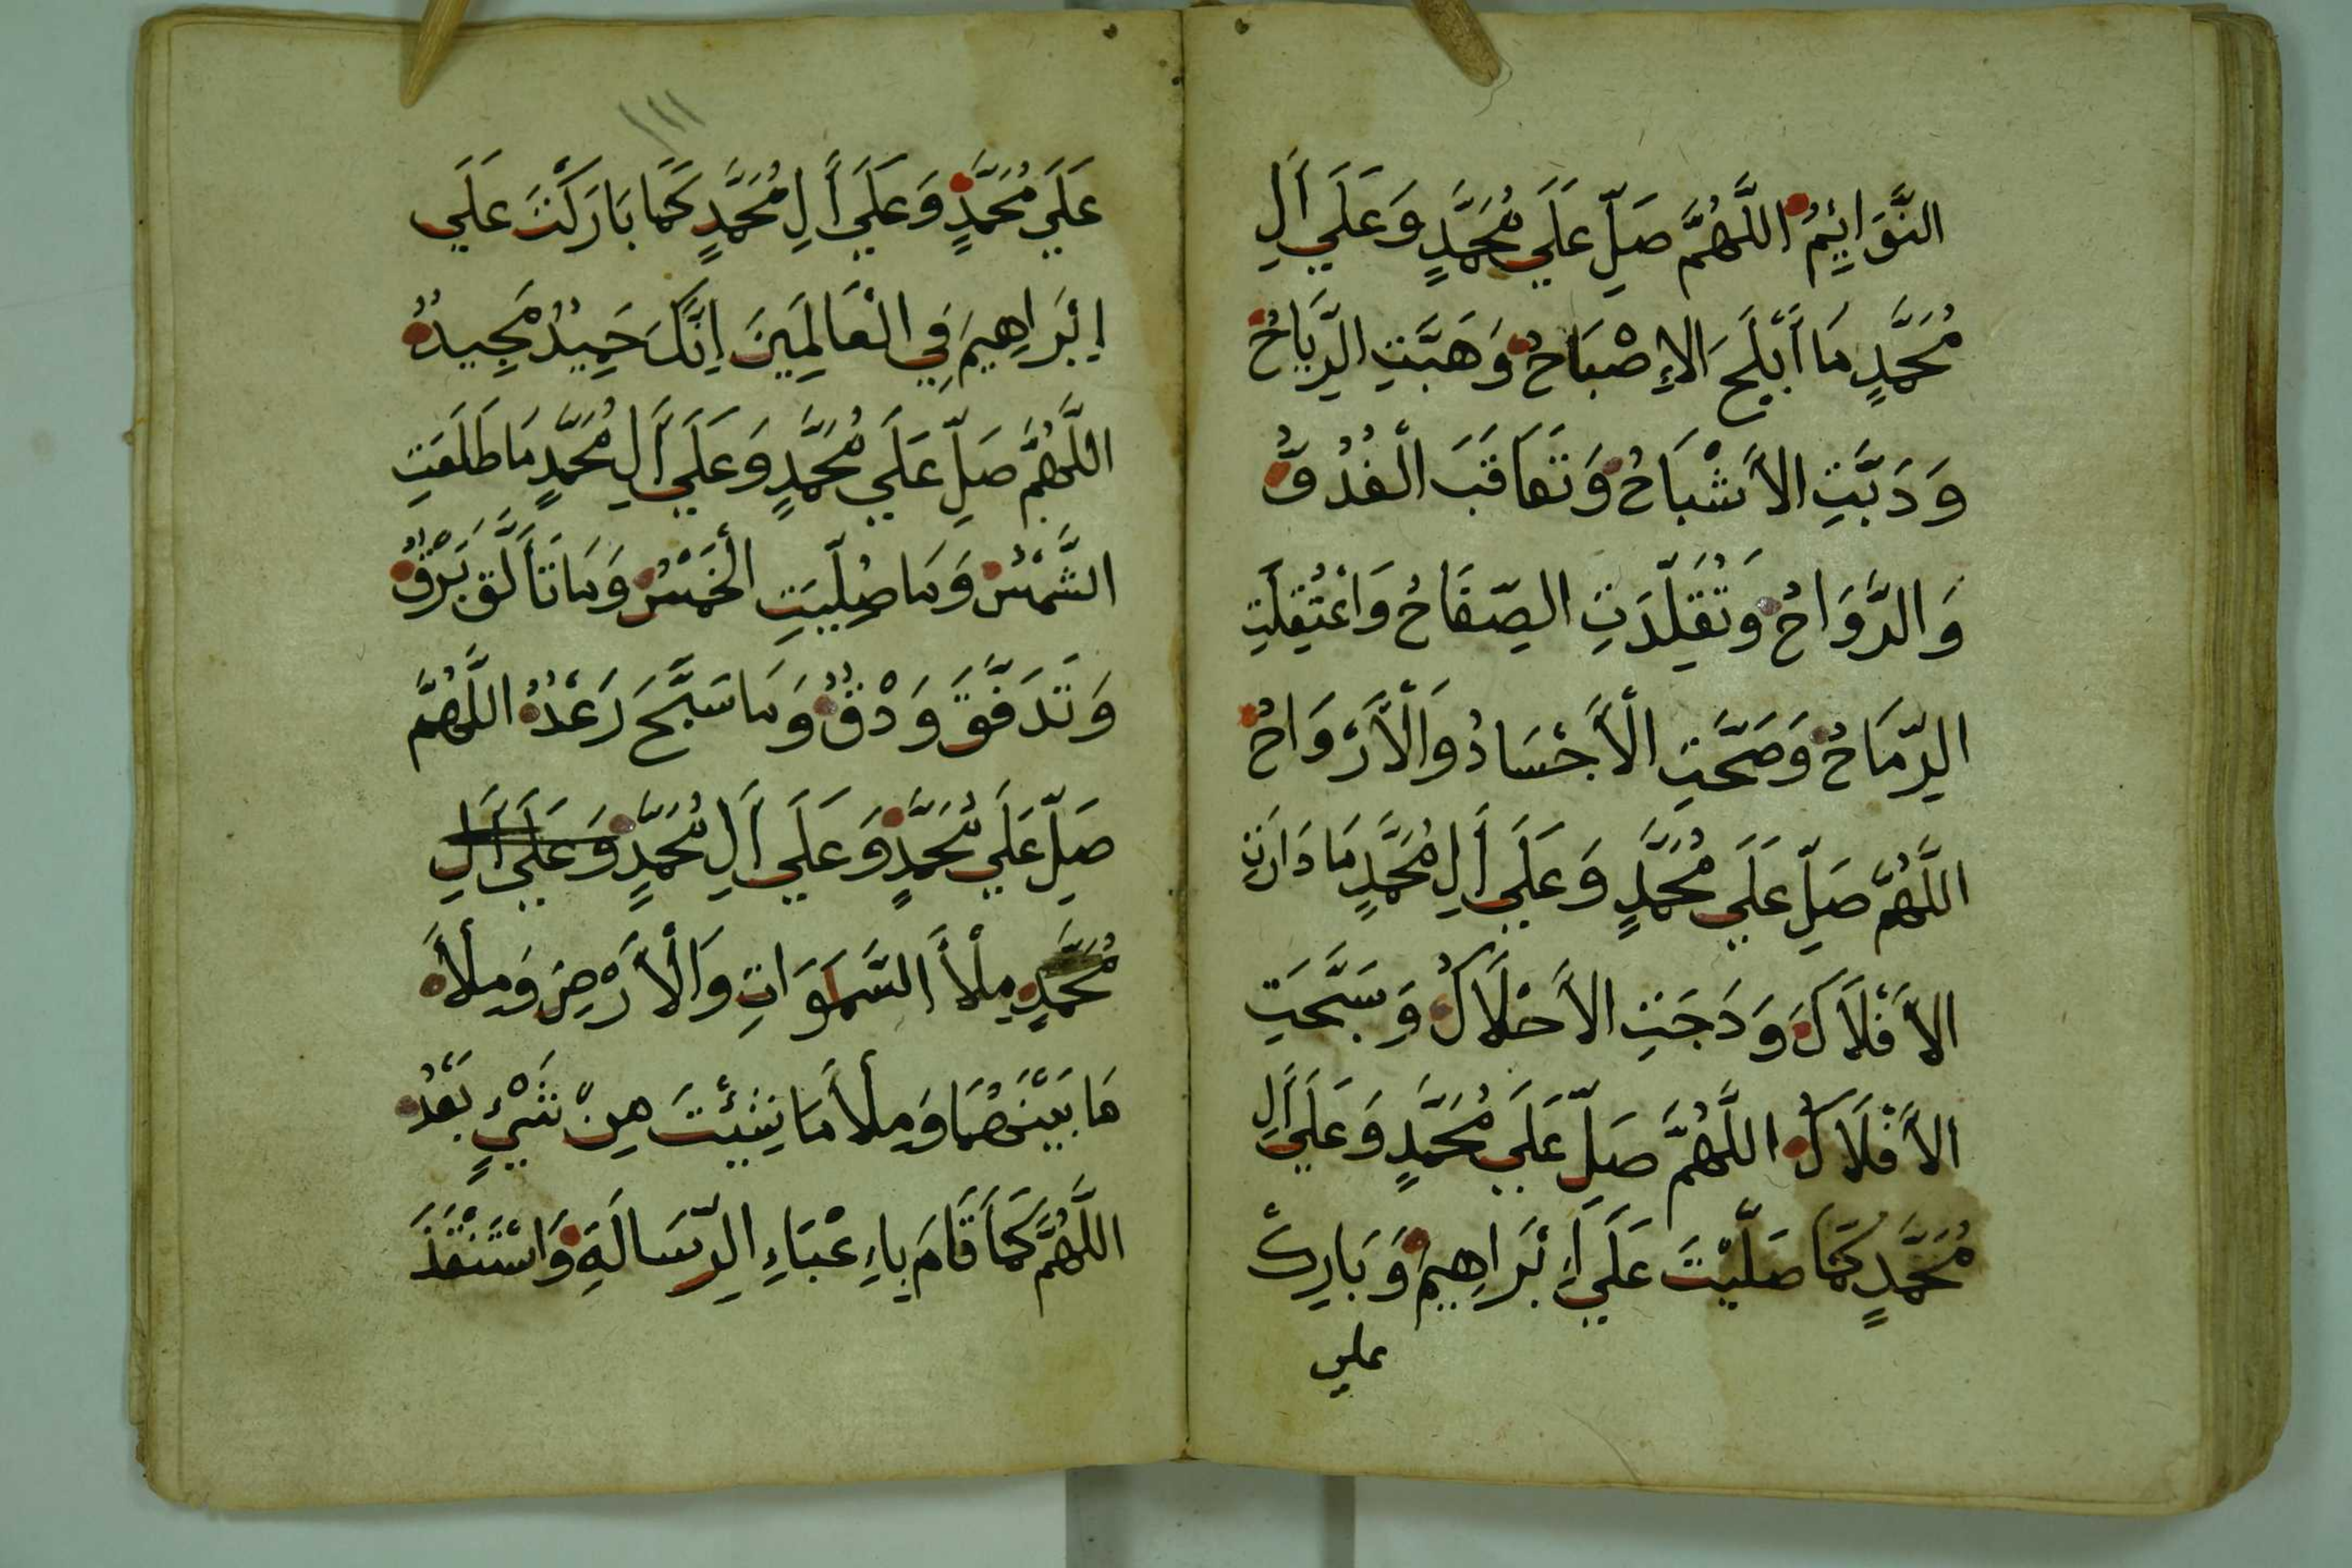 النَّوَائِمُ اللَّهُمَّ صَلِّ عَلَي مُحَمَّدٍ وَعَلَي أَلِ
مُحَمَّدٍ مَا أَبْلَجَ الإِصْبَاحُ وَهَبَّتِ الرِّيَاحُ
وَدَبَّتِ الأَشْبَاحُ وَتَعَاقَبَ الْغُدُوُّ
وَالرَّوَاحُ وَتُقُلِّدَتِ الصِّفَاحُ وَاعْتُقِلَتِ
الرِّمَاحُ وَصَحَّتِ الْأَجْسَادُ وَالْأَرْوَاحُ
اللَّهُمَّ صَلِّ عَلَي مُحَمَّدٍ وَعَلَي أَلِ مُحَمَّدٍ مَا دَارَتِ
الأَفْلَاكُ وَدَجَتِ الأَحْلَاكُ وَسَبَّحَتِ
الأَفْلَاكُ اللَّهُمَّ صَلِّ عَلَي مُحَمَّدٍ وَعَلَي أَلِ
مُحَمَّدٍ كَمَا صَلَّيْتَ عَلَي إِبْرَاهِيمَ وَبَارِكْ
علي
١١١
عَلَي مُحَمَّدٍ وَعَلَي أَلِ مُحَمَّدٍ كَمَا بَارَكْتَ عَلَي
إِبْرَاهِيمَ فِي الْعَالَمِينَ اِنَّكَ حَمِيدٌ مَجِيدٌ
اللَّهُمَّ صَلِّ عَلَي مُحَمَّدٍ وَعَلَي أَلِ مُحَمَّدٍ مَا طَلَعَتِ
الشَّمْسُ وَمَا صُلِّيَتِ الْخَمْسُ وَمَا تَأَلَّقَ بَرْقٌ
وَتَدَفَّقَ وَدْقٌ وَمَا سَبَّحَ رَعْدٌ اللَّهُمَّ
صَلِّ عَلَي مُحَمَّدٍ وَعَلَي أَلِ مُحَمَّدٍ وَعَلَي أَلِ
مُحَمَّدٍ مِلْأَ السَّمَوَاتِ وَالْأَرْضِ وَمِلْأَ
مَا بَيْنَهُمَا وَمِلْأَ مَا شِئْتَ مِنْ شَيْءٍ بَعْدُ
اللَّهُمَّ كَمَا قَامَ بِاِعْبَاءِ الرِّسَالَةِ وَاسْتَنْقَذَ